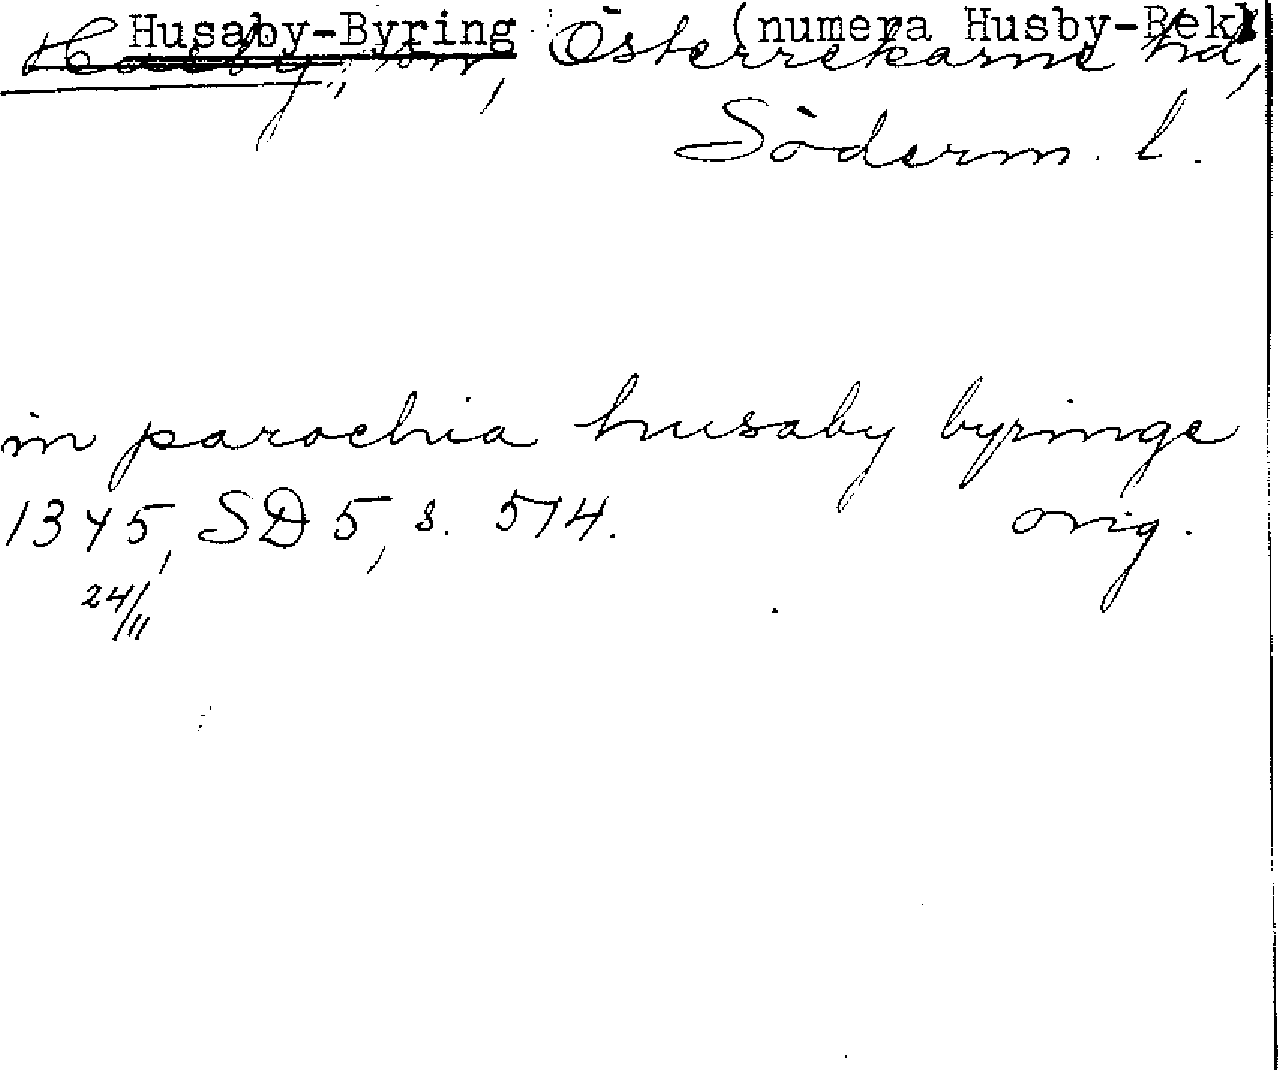 Husaby-Byring (numera Husby-Rek)
Husby, sn, Österrekarne hd,
Söderm. l.
in parochia husaby byringe
1345, SD 5, s. 514. orig.
24/11